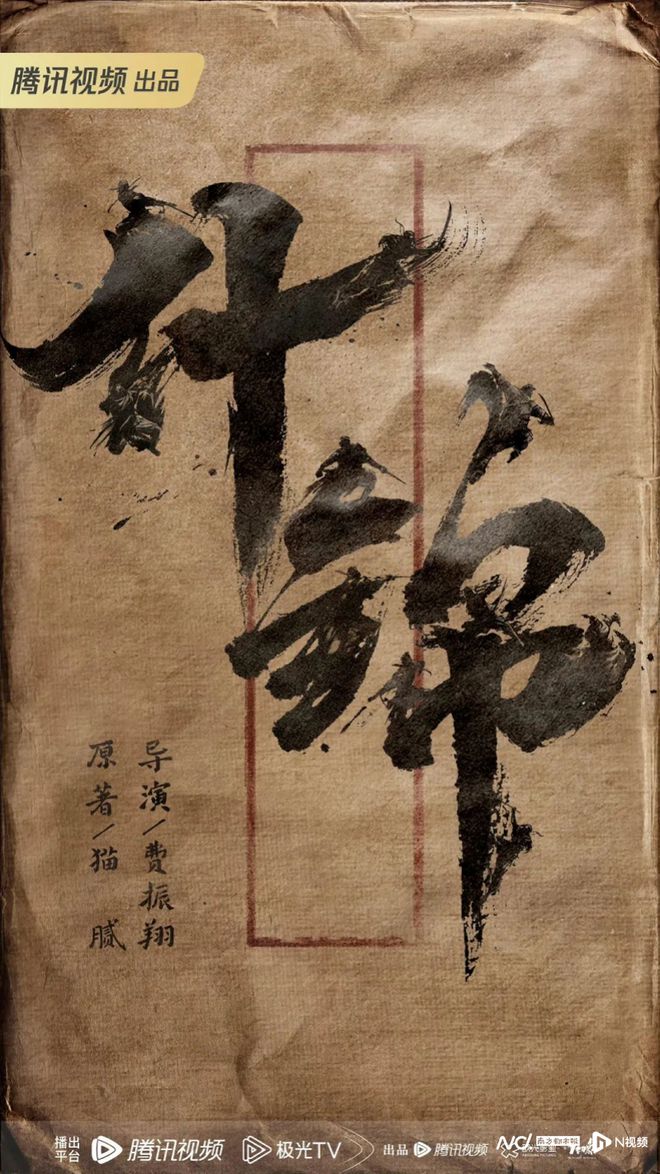 腾讯视频 出品
什錦
导演/费振翔
原著/猫腻
播出平台 腾讯视频 极光TV 出品 腾讯视频
南方都市报 N视频